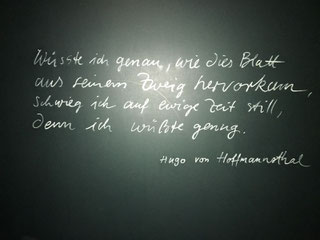 Wüsste ich genau, wie dies Blatt
aus seinem Zweig hervorkam,
schwieg ich auf ewige Zeit still,
denn ich wüßte genug.
Hugo von Hoffmannsthal